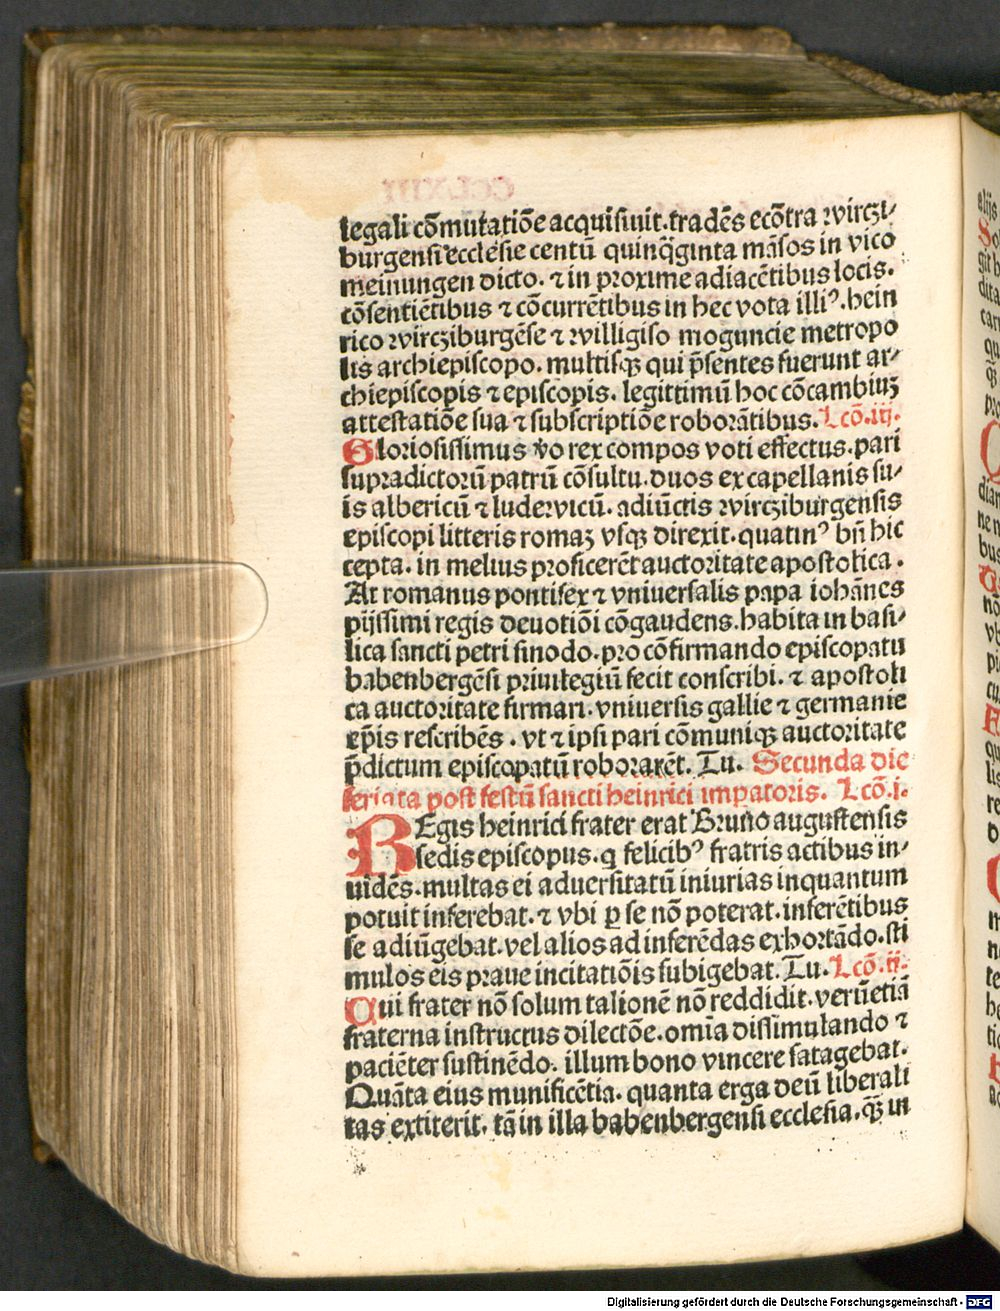 legali cōmutatiōe acquisiuit.tradēs ecōtra wirczi-
burgensi ecclesie centū quinq̄ginta māsos in vico
meinungen dicto. ⁊ in proxime adiacētibus locis.
cōsentiētibus ⁊ cōcurrētibus in hec vota illiꝰ.hein
rico wircziburgēse ⁊ willigiso moguncie metropo
lis archiepiscopo. multisqꝫ qui p̄sentes fuerunt ar-
chiepiscopis ⁊ episcopis. legittimū hoc cōcambiuꝫ
attestatiōe sua ⁊ subscriptiōe roborātibus. Lcō.iij.
Gloriosissimus v̄o rex compos voti effectus.pari
supradictorū patrū cōsultu.duos ex capellanis su-
is albericū ⁊ ludewicū. adiūctis wircziburgensis
episcopi litteris romaꝫ vsqꝫ direxit.quatinꝰ bn̄ hic
cepta. in melius proficerēt auctoritate apostolica.
At romanus pontifex ⁊ vniuersalis papa iohānes
pijssimi regis deuotiōi cōgaudens.habita in basi-
lica sancti petri sinodo.pro cōfirmando episcopatu
babenbergēsi priuilegiū fecit conscribi. ⁊ apostoli
ca auctoritate firmari.vniuersis gallie ⁊ germanie
ep̄is rescribēs. vt ⁊ ipsi pari cōmuniqꝫ auctoritate
p̄dictum episcopatū roborarēt. Tu. Secunda die
feriata post festū sancti heinrici impatoris. Lcō.i.
REgis heinrici frater erat Bruno augustensis
sedis episcopus.q felicibꝰ fratris actibus in-
uidēs.multas ei aduersitatū iniurias inquantum
potuit inferebat.⁊ vbi ꝑ se nō poterat.inferētibus
se adiūgebat.vel alios ad inferēdas exhortādo.sti
mulos eis praue incitatiōis subigebat. Tu. Lcō.ii.
Cui frater nō solum talionē nō reddidit.verūetiā
fraterna instructus dilectōe.omīa dissimulando ⁊
paciēter sustinēdo. illum bono vincere satagebat.
Quāta eius munificētia. quanta erga deū liberali
tas extiterit. tā in illa babenbergensi ecclesia.qꝫ in
Digitalisierung gefördert durch die Deutsche Forschungsgemeinschaft - DFG